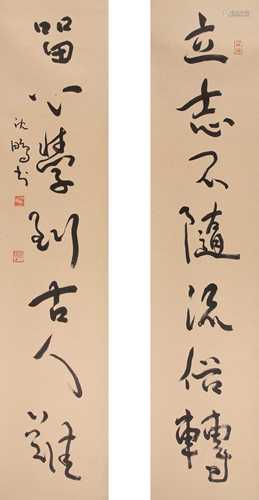 立志不随流俗轉
留心學到古人難
沈鹏书